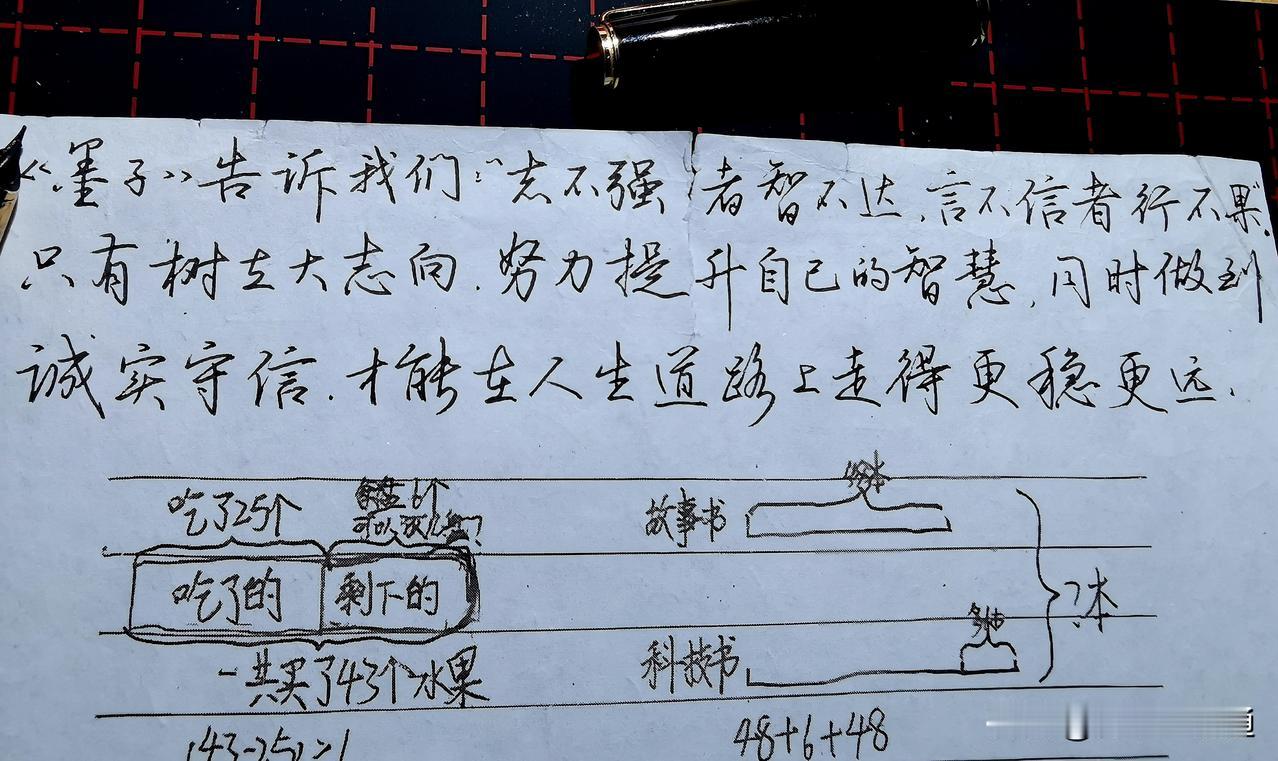 《墨子》告诉我们:"志不强者智不达,言不信者行不果".
只有树立大志向.努力提升自己的智慧,同时做到
诚实守信.才能在人生道路上走得更稳更远.
吃了25个
每盘6个
可以装几盘?
吃了的 剩下的
一共买了43个水果
故事书
科技书
?本
48+6+48